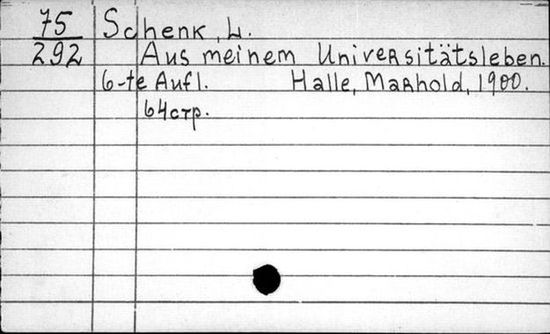 75 Schenk, L.
292 Aus meinem Universitätsleben.
6-te Aufl. Halle, Marhold, 1900.
64 стр.